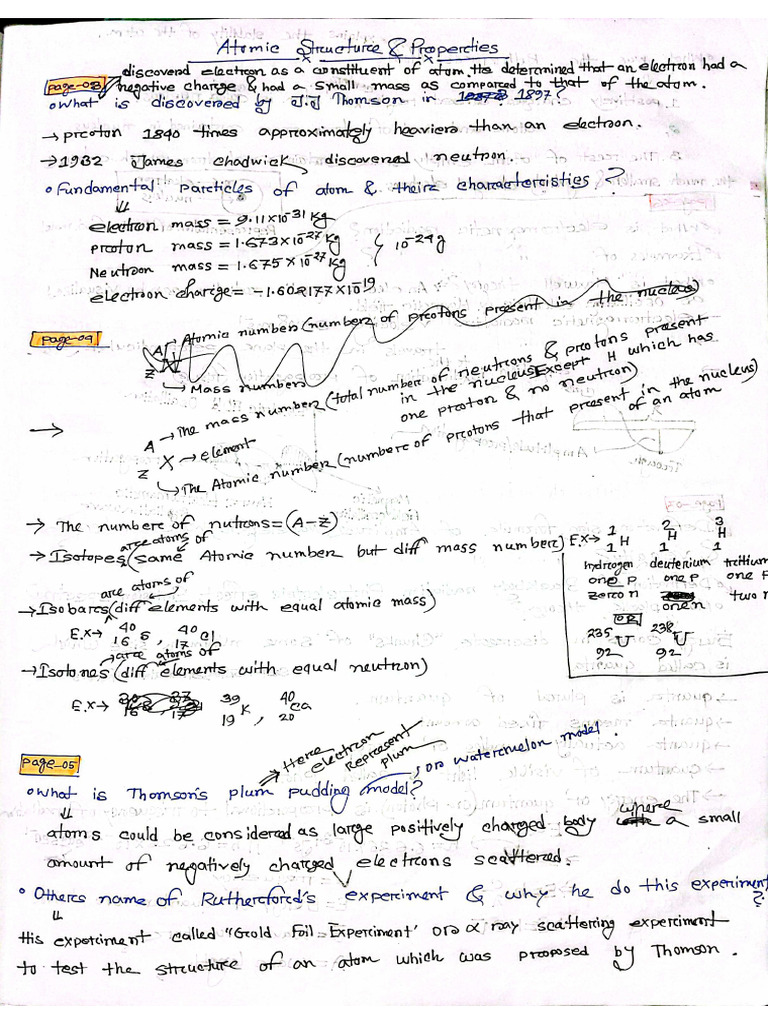 Atomic Structure & Properties
discovered electron as a constituent of atom. He determined that an electron had a
page-03 negative charge & had a small mass as compared to that of the atom.
○ What is discovered by J.J Thomson in 1897?
→ proton 1840 times approximately heavier than an electron.
→ 1932 James chadwick discovered neutron.
○ Fundamental Particles of atom & their characteristies?
⇓
electron mass = 9.11×10⁻³¹ kg
proton mass = 1.673×10⁻²⁷ kg } 10⁻²⁴ g
Neutron mass = 1.675×10⁻²⁷ kg
electron charge = -1.602177×10⁻¹⁹
page-04
A → Atomic number (number of protons present in the nucleus
Z N
→ Mass number (total number of neutrons & protons present
in the nucleus Except H which has
one proton & no neutron)
→ A → The mass number
Z X → element
→ The Atomic number (number of protons that present in the nucleus)
of an atom
→ The number of nutrons = (A-Z)
→ Isotopes (are atoms of same Atomic number but diff mass number) E.X→ ¹₁H ²₁H ³₁H
hydrogen deuterium tritium
one p one p one p
zero n one n two n
OR
²³⁵₉₂U ²³⁸₉₂U
→ Isobars (are atoms of diff elements with equal atomic mass)
E.X→ ⁴⁰₁₆S, ⁴⁰₁₇Cl
→ Isotones (are atoms of diff elements with equal neutron)
E.X→ ³⁹₁₉K, ⁴⁰₂₀Ca
page-05
⇒ Here electron Represent plum
○ What is Thomson's plum pudding model? , or watermelon model.
⇓
atoms could be considered as large positively charged body where a small
amount of negatively charged electrons scattered.
○ Others name of Rutherford's experiment & why he do this experiment?
⇓
His experiment called "Gold Foil Experiment' or α ray scattering experiment
to test the structure of an atom which was proposed by Thomson.